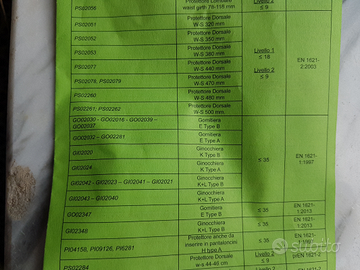 PS02056
Protettore Lombare
waist girth 78-118 mm
Livello 2
≤ 9
PS02051
Protettore Dorsale
W-S 320 mm
PS02052
Protettore Dorsale
W-S 350 mm
PS02053
Protettore Dorsale
W-S 380 mm
Livello 1
≤ 18
PS02077
Protettore Dorsale
W-S 440 mm
PS02078, PS02079
Protettore Dorsale
W-S 470 mm
Livello 2
≤ 9
PS02260
Protettore Dorsale
W-S 480 mm
PS02261; PS02262
Protettore Dorsale
W-S 500 mm
EN 1621-
2:2003
GO02030 - GO02016 - GO02039 –
GO02037
Gomitiera
E Type B
GO02032 – GO02281
Gomitiera
E Type A
GI02026
Ginocchiera
K Type B
GI02024 -
Ginocchiera
K Type A
GI02042 - GI02023 – GI02041 – GI02021
Ginocchiera
K+L Type B
GI02043 – GI02040
Ginocchiera
K+L Type B
≤ 35
EN 1621-
1:1997
GO02347
Gomitiera
E Type B
≤ 35
EN 1621-
1:2013
GI02348
Ginocchiera
K Type B
≤ 35
EN 1621-
1:2013
PI04158, PI09126, PI6281
Protettore anche da
inserire in pantaloncini
H type A
≤ 35
PS02284
Protettore Dorsale
w-s 44-46 cm
Livello 2
≤ 9
Subito.it